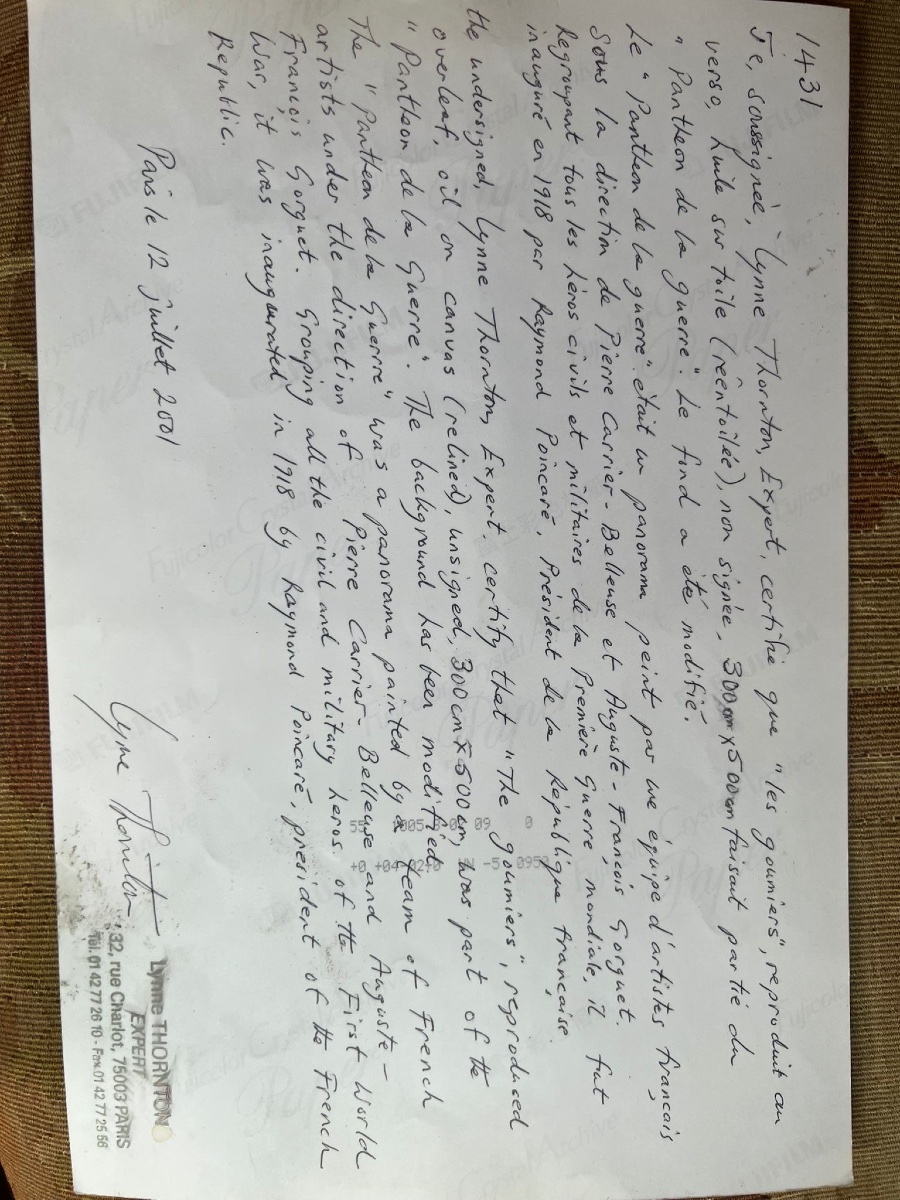 1431
Je, soussignée, Lynne Thornton, Expert, certifie que "les goumiers", reproduit au
verso, huile sur toile (réentoilée), non signée, 300cm x 500cm faisait partie du
"Pantheon de la guerre". Le fond a eté modifié.
Le "Pantheon de la guerre" était un panorama peint par une équipe d'artistes français
Sous la direction de Pierre Carrier-Belleuse et Auguste-François Gorguet.
Regroupant tous les héros civils et militaires de la Première Guerre mondiale, il fut
inauguré en 1918 par Raymond Poincaré, Président de la République française.
the undersigned, Lynne Thornton, Expert, certify that "The goumiers", reproduced
overleaf, oil on canvas (relined), unsigned, 300cm x 500cm, was part of the
"Pantheon de la Guerre". The background has been modified
The "Pantheon de la Guerre" was a panorama painted by a team of French
artists under the direction of Pierre Carrier-Belleuse and Auguste-
François Gorguet. Grouping all the civil and military heros of the First World
War, it was inaugurated in 1918 by Raymond Poincaré, president of the French
Republic.
Paris le 12 juillet 2001
Lynne Thornton
Lynne THORNTON
EXPERT
32, rue Charlot, 75003 PARIS
Tél. 01 42 77 26 10 - Fax 01 42 77 25 56
FUJIFILM
Fujicolor Crystal Archive
Paper